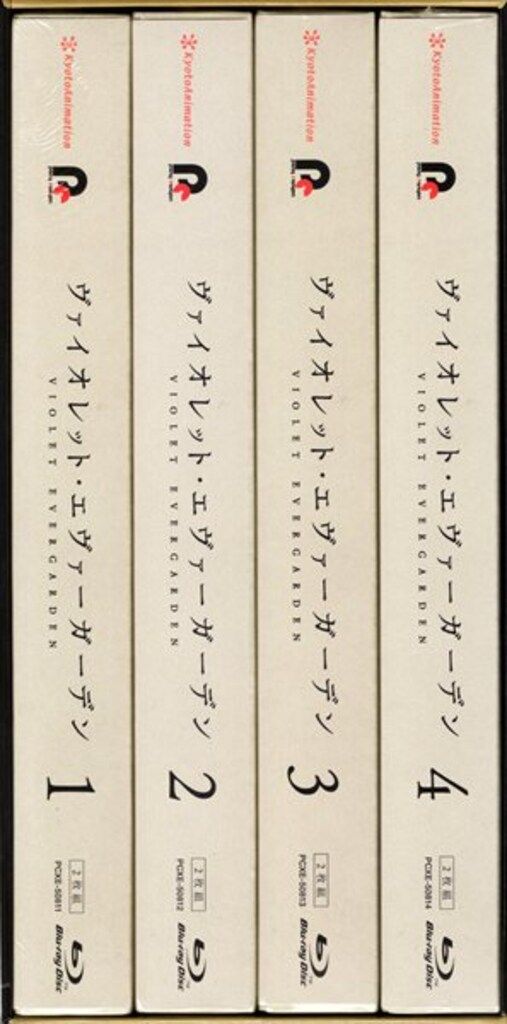 KyotoAnimation
ヴァイオレット・エヴァーガーデン
VIOLET EVERGARDEN
1
2枚組
PCXE-50811
Blu-ray Disc
KyotoAnimation
ヴァイオレット・エヴァーガーデン
VIOLET EVERGARDEN
2
2枚組
PCXE-50812
Blu-ray Disc
KyotoAnimation
ヴァイオレット・エヴァーガーデン
VIOLET EVERGARDEN
3
2枚組
PCXE-50813
Blu-ray Disc
KyotoAnimation
ヴァイオレット・エヴァーガーデン
VIOLET EVERGARDEN
4
2枚組
PCXE-50814
Blu-ray Disc